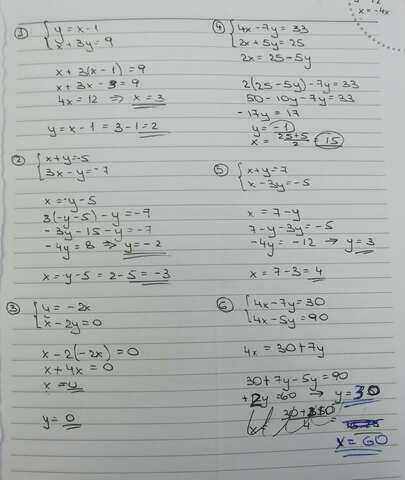 y = 12
x = -4x
① { y = x - 1
x + 3y = 9
x + 3(x - 1) = 9
x + 3x - 3 = 9
4x = 12 ⇒ x = 3
y = x - 1 = 3 - 1 = 2
② { x + y = -5
3x - y = -7
x = -y - 5
3(-y - 5) - y = -7
-3y - 15 - y = -7
-4y = 8 ⇒ y = -2
x = -y - 5 = 2 - 5 = -3
③ { y = -2x
x - 2y = 0
x - 2(-2x) = 0
x + 4x = 0
x = 0
y = 0
④ { 4x - 7y = 33
2x + 5y = 25
2x = 25 - 5y
2(25 - 5y) - 7y = 33
50 - 10y - 7y = 33
-17y = 17
y = -1
x = 25+5/2 = 15
⑤ { x + y = 7
x - 3y = -5
x = 7 - y
7 - y - 3y = -5
-4y = -12 → y = 3
x = 7 - 3 = 4
⑥ { 4x - 7y = 30
4x - 5y = 90
4x = 30 + 7y
30 + 7y - 5y = 90
+2y = 60 → y = 30
x = 60